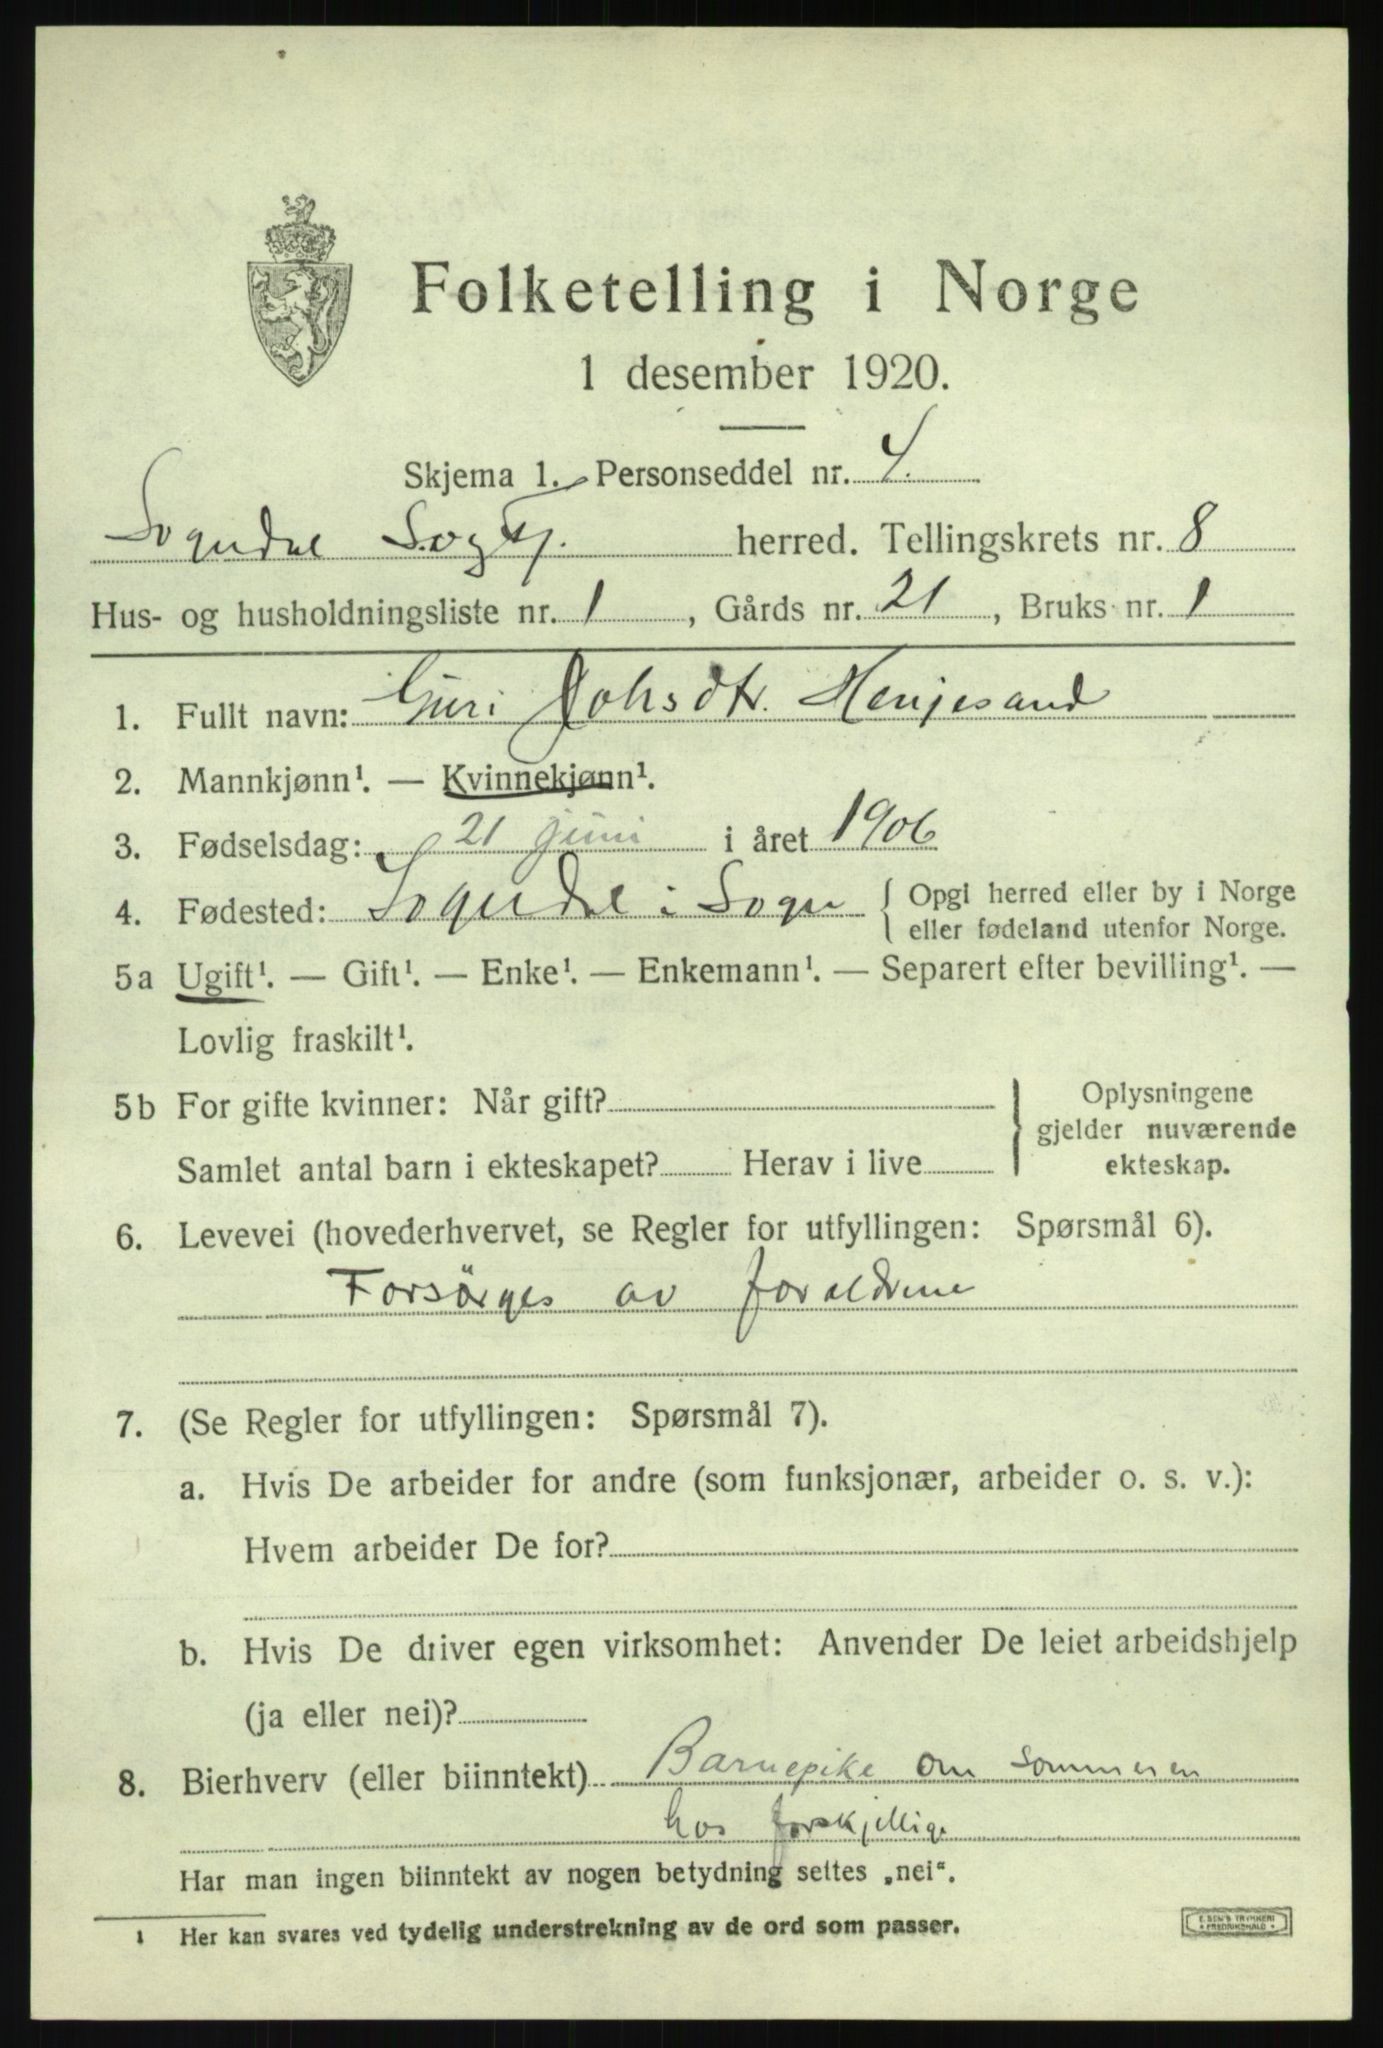 Folketelling i Norge
1 desember 1920.
Skjema 1. Personseddel nr. 4.
Sogndal herred. Tellingskrets nr. 8
Hus- og husholdningsliste nr. 1, Gårds nr. 21, Bruks nr. 1
1. Fullt navn: Guri Johsdtr. Henjesand
2. Mannkjønn¹. — Kvinnekjønn¹.
3. Fødselsdag: 21 juni i året 1906
4. Fødested: Sogndal i Sogn { Opgi herred eller by i Norge
eller fødeland utenfor Norge.
5a Ugift¹. — Gift¹. — Enke¹. — Enkemann¹. — Separert efter bevilling¹. —
Lovlig fraskilt¹.
5b For gifte kvinner: Når gift?
Samlet antal barn i ekteskapet? Herav i live
} Oplysningene
gjelder nuværende
ekteskap.
6. Levevei (hovederhvervet, se Regler for utfyllingen: Spørsmål 6).
Forsörges av foraldrene
7. (Se Regler for utfyllingen: Spørsmål 7).
a. Hvis De arbeider for andre (som funksjonær, arbeider o. s. v.):
Hvem arbeider De for?
b. Hvis De driver egen virksomhet: Anvender De leiet arbeidshjelp
(ja eller nei)?
8. Bierhverv (eller biinntekt) Barnepike om sommeren
hos forskjellige
Har man ingen biinntekt av nogen betydning settes „nei“.
1 Her kan svares ved tydelig understrekning av de ord som passer.